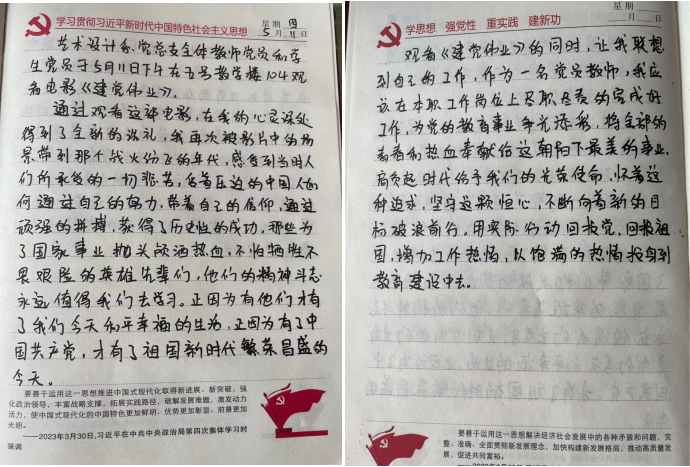 学习贯彻习近平新时代中国特色社会主义思想
星期 四
5月11日
艺术设计系党总支全体教师党员和学
生党员于5月11日下午在五号教学楼104观
看电影《建党伟业》。
通过观看这部电影,在我的心灵深处
得到了全新的洗礼,我再次被影片中的场
景带到那个战火纷飞的年代,感受到当时人
们所承受的一切悲苦,生活在压迫的中国人如
何通过自己的努力,带着自己的信仰,通过
顽强的拼搏,获得了历史性的成功,那些为
了国家事业抛头颅洒热血,不怕牺牲不
畏艰险的英雄先辈们,他们的精神斗志
永远值得我们去学习。正因为有他们才有
了我们今天和平幸福的生活,正因为有了中
国共产党,才有了祖国新时代繁荣昌盛的
今天。
要善于运用这一思想推进中国式现代化取得新进展、新突破,强
化政治领导,丰富战略支撑,拓展实践路径,破解发展难题,激发动力
活力,使中国式现代化的中国特色更加鲜明、优势更加彰显、前景更加
光明。
——2023年3月30日,习近平在中共中央政治局第四次集体学习时
强调
学思想 强党性 重实践 建新功
星期
月 日
观看《建党伟业》的同时,让我联想
到自己的工作,作为一名党员教师,我应
该在本职工作岗位上尽职尽责的完成好
工作,为党的教育事业争光添彩,将全部的
青春和热血奉献给这朝阳下最美的事业,
肩负起时代给予我们的光荣使命,怀着这
种追求,坚守这颗恒心,不断向着新的目
标破浪前行。用实际行动回报党,回报祖
国,增加工作热情,以饱满的热情投身到
教育建设中去。
要善于运用这一思想解决经济社会发展中的各种矛盾和问题,完
整、准确、全面贯彻新发展理念,加快构建新发展格局,推动高质量发
展,促进共同富裕。